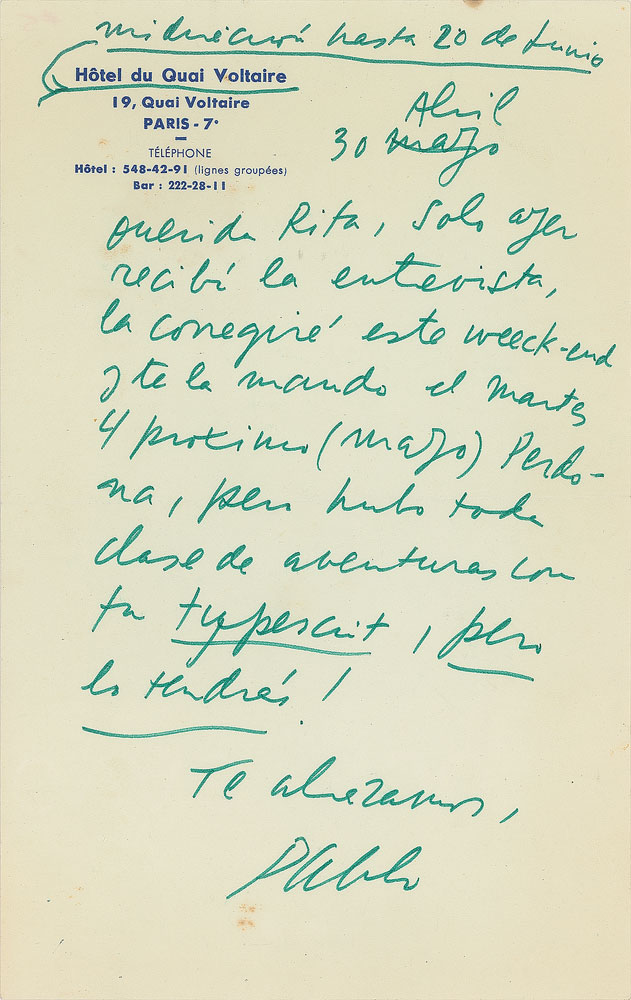 mi dirección hasta 20 de Junio
Hôtel du Quai Voltaire
19, Quai Voltaire
PARIS - 7e
TÉLÉPHONE
Hôtel : 548-42-91 (lignes groupées)
Bar : 222-28-11
Abril
30 mayo
Querida Rita, Solo ayer
recibí la entrevista,
la corregiré este weeck-end
y te la mando el martes
4 proximo (mayo) Perdo-
na, pero hubo toda
clase de aventuras con
tu typescrit, pero
lo tendrás!
Te abrazamos,
Pablo